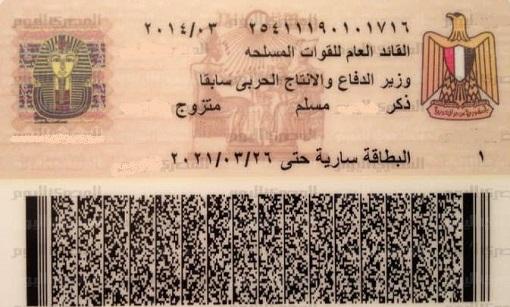 ٢٠١٤/٠٣ ٢٥٤١١١٩٠١٠١٧١٦
القائد العام للقوات المسلحه
وزير الدفاع والانتاج الحربى سابقا
ذكر مسلم متزوج
١ البطاقة سارية حتى ٢٠٢١/٠٣/٢٦
المصري اليوم